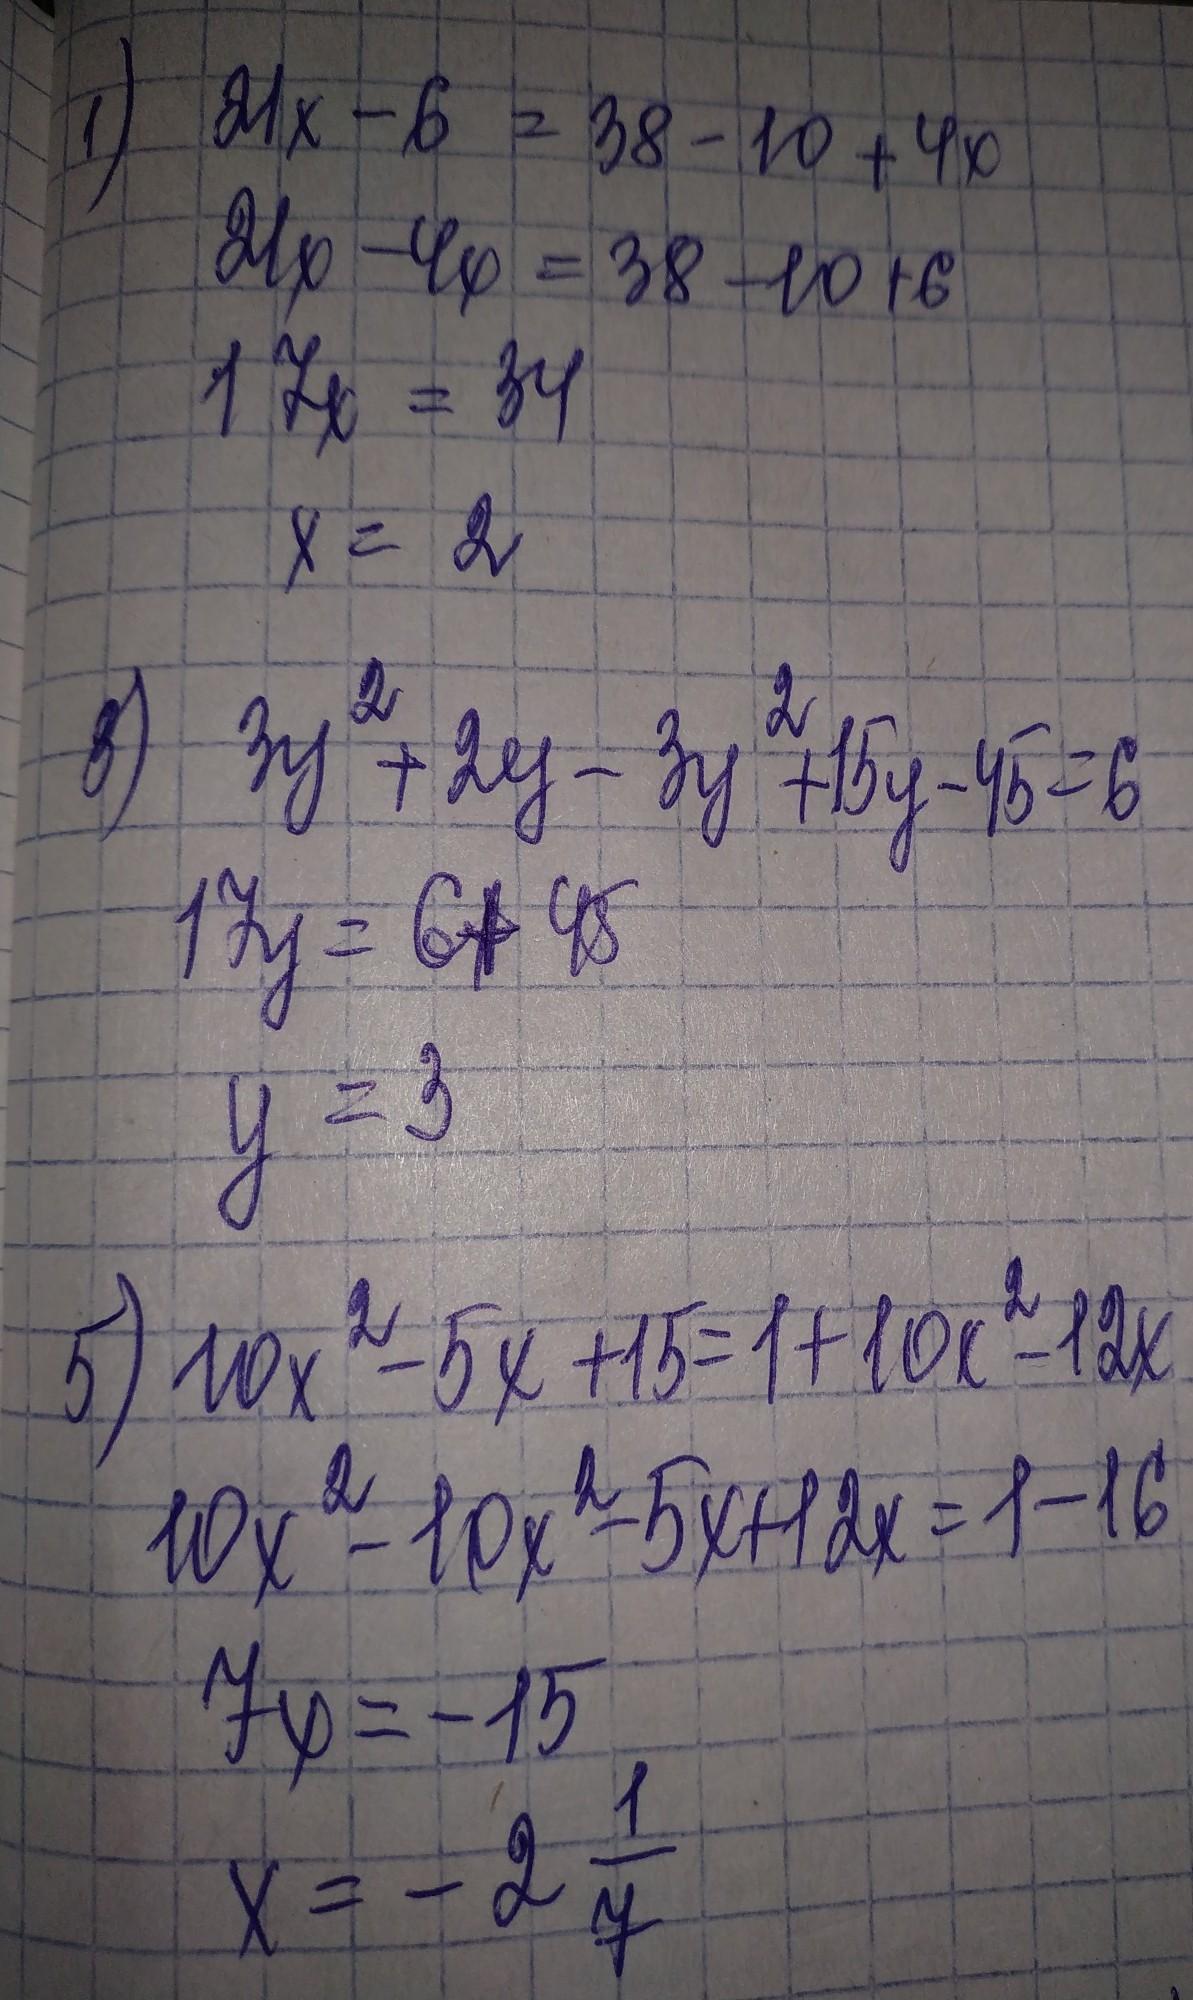 1) 21x - 6 = 38 - 10 + 4x
21x - 4x = 38 - 10 + 6
17x = 34
x = 2
3) 3y² + 2y - 3y² + 15y - 45 = 6
17y = 6 + 45
y = 3
5) 10x² - 5x + 15 = 1 + 10x² - 12x
10x² - 10x² - 5x + 12x = 1 - 16
7x = -15
x = -2 1/7